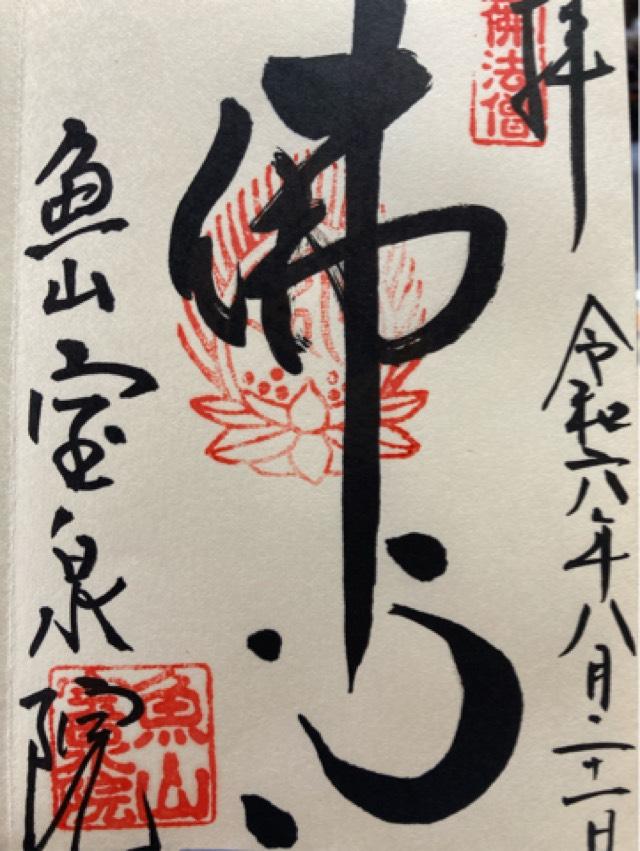 拝
令和六年八月二十一日
佛法僧
佛心
魚山宝泉院
魚山
寶泉院